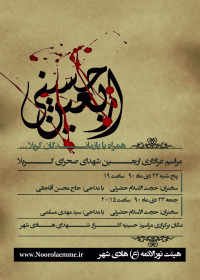 اربعین حسینی
همراه با بازماندگان کربلا...
مراسم عزاداری اربعین شهدای صحرای کربلا
پنج شنبه ۲۲ دی ماه ۹۰ ساعت ۱۹
سخنران: حجت الاسلام حضرتی با مداحی: حاج محسن آقاجانی
جمعه ۲۳ دی ماه ۹۰ ساعت ۲۰:۱۵
سخنران: حجت الاسلام حضرتی با مداحی: سید مهدی مسلمی
مکان برگزاری مراسم: حسینیه گلزار شهدای هادی شهر
هیئت نورالائمه (ع) هادی شهر
www.Noorolaemme.ir